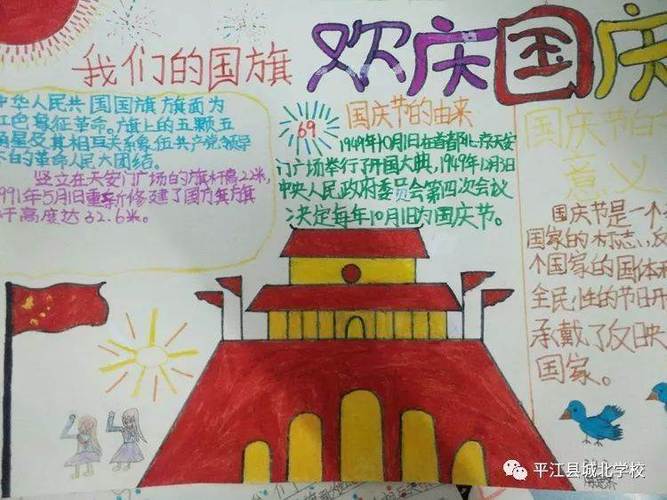 我们的国旗
欢庆国庆
中华人民共和国国旗旗面为
红色象征革命。旗上的五颗五
角星及其相互关系象征共产党领导
下的革命人民大团结。
竖立在天安门广场的旗杆高22米,
1991年5月1日重新修建了国旗旗
杆高度达32.6米。
69
国庆节的由来
1949年10月1日在首都北京天安
门广场举行了开国大典,1949年12月3日
中央人民政府委员会第四次会议
决定每年10月1日为国庆节。
国庆节的
意义
国庆节是一个
国家的标志
个国家的国体
全民性的节日
承载了反映
国家。
平江县城北学校